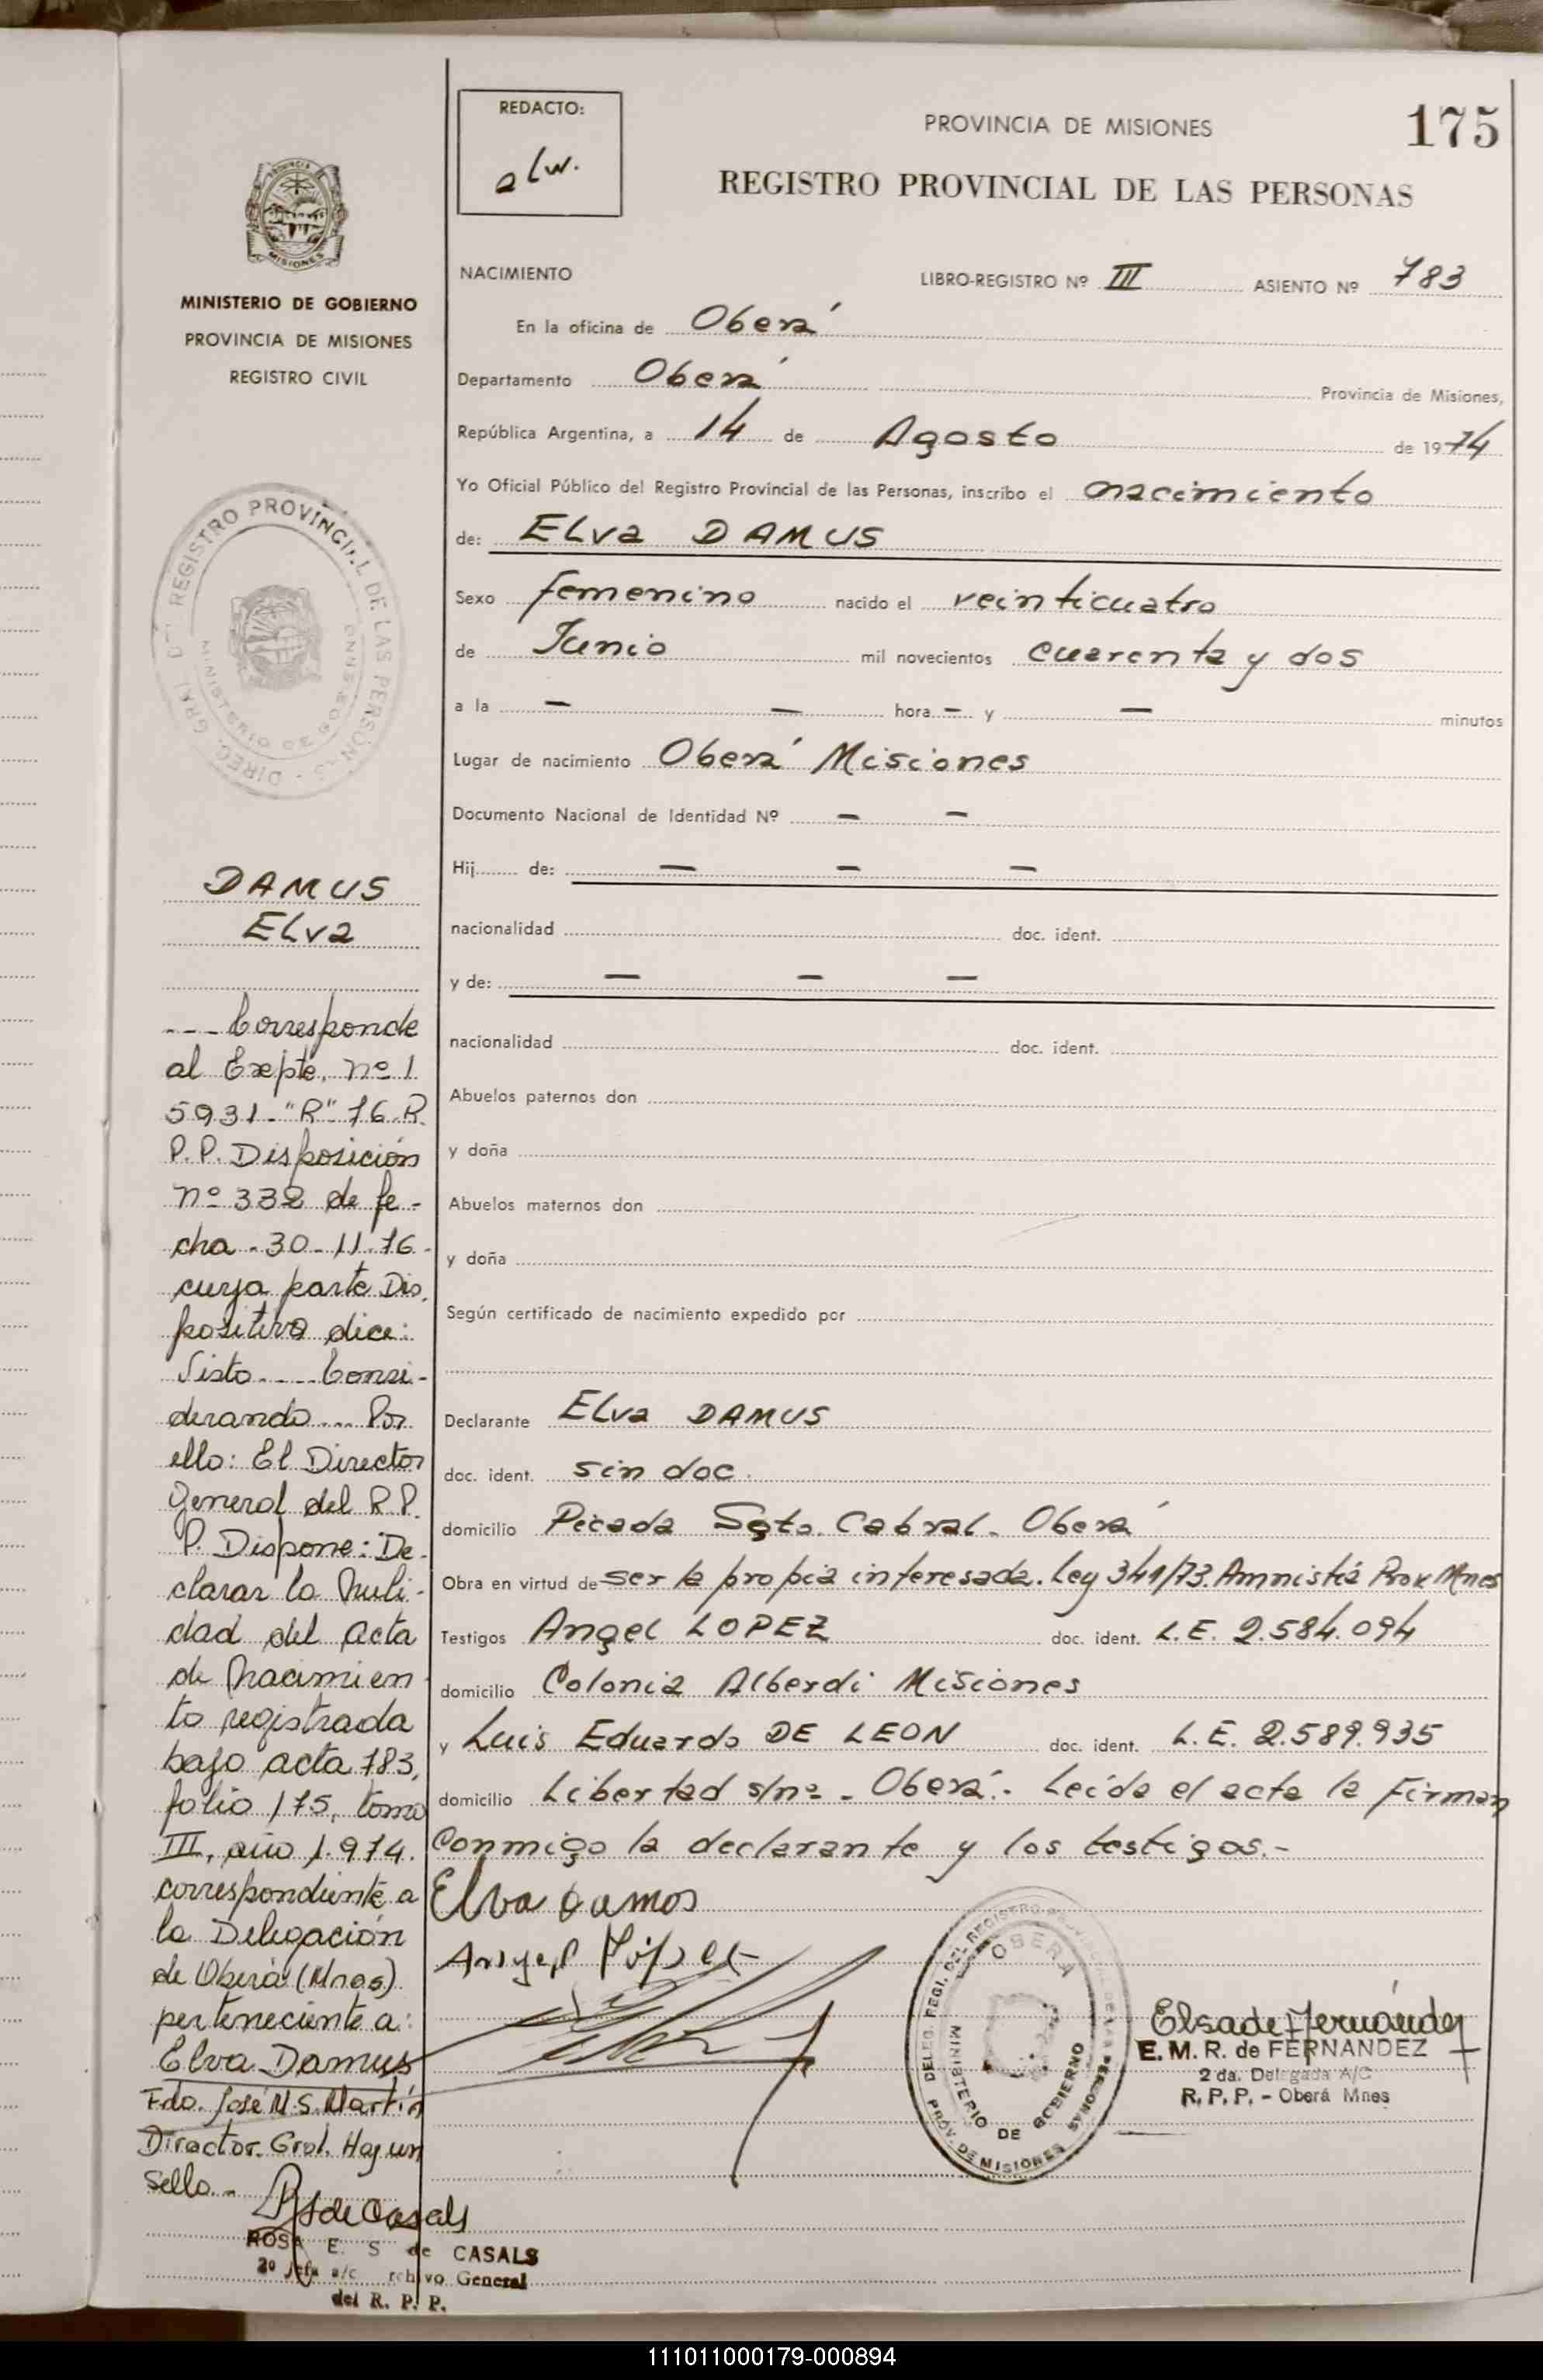 REDACTO:
alw.
PROVINCIA DE MISIONES
175
REGISTRO PROVINCIAL DE LAS PERSONAS
MISIONES
MINISTERIO DE GOBIERNO
PROVINCIA DE MISIONES
REGISTRO CIVIL
NACIMIENTO
LIBRO-REGISTRO Nº III ASIENTO Nº 783
En la oficina de Oberá
Departamento Oberá Provincia de Misiones,
República Argentina, a 14 de Agosto de 1974
Yo Oficial Público del Registro Provincial de las Personas, inscribo el nacimiento
de: ELva DAMUS
Sexo femenino nacido el veinticuatro
de Junio mil novecientos cuarenta y dos
a la — — hora — y — minutos
Lugar de nacimiento Oberá Misiones
Documento Nacional de Identidad Nº — —
Hij de: — — —
nacionalidad doc. ident.
y de: — — —
nacionalidad doc. ident.
Abuelos paternos don
y doña
Abuelos maternos don
y doña
Según certificado de nacimiento expedido por
Declarante ELva DAMUS
doc. ident. sin doc.
domicilio Picada Sgto. Cabral. Oberá
Obra en virtud de ser la propia interesada. Ley 341/73. Amnistiá Prov Mnes
Testigos Angel LOPEZ doc. ident. L.E. 2.584.094
domicilio Colonia Alberdi Misiones
y Luis Eduardo DE LEON doc. ident. L.E. 2.589.935
domicilio Libertad s/nº - Oberá.- Leída el acta la Firman
Conmigo la declarante y los testigos.-
Elva Damos
Angel López
DIREC. GRAL. DEL REGISTRO PROVINCIAL DE LAS PERSONAS
MINISTERIO DE GOBIERNO
DAMUS
ELva
--- Corresponde
al Exepte. nº 1
5931-"R"-76-R.
P.P. Disposición
nº 332 de fe-
cha -30-11-76-
cuya parte Dis.
positiva dice:
Visto---- Consi-
derando--- Por
ello: El Director
General del R.P.
P. Dispone: De-
clarar la Nuli-
dad del acta
de Nacimien
to registrada
bajo acta 783,
folio 175, tomo
III, año 1.974.
correspondiente a
la Delegación
de Oberá (Mnes)
perteneciente a:
Elva Damus
Fdo. José M.S. Martín
Director. Gral. Hay un
Sello.-
RS de Casals
ROSA E. S de CASALS
2º Jefa a/c rchivo General
del R. P. P.
DELEG. REGI. DEL REGISTRO PROVINCIAL DE LAS PERSONAS
OBERA
MINISTERIO DE GOBIERNO
PROV. DE MISIONES
Elsa de Fernández
E. M. R. de FERNANDEZ
2 da. Delegada A/C
R. P. P. - Oberá Mnes
111011000179-000894